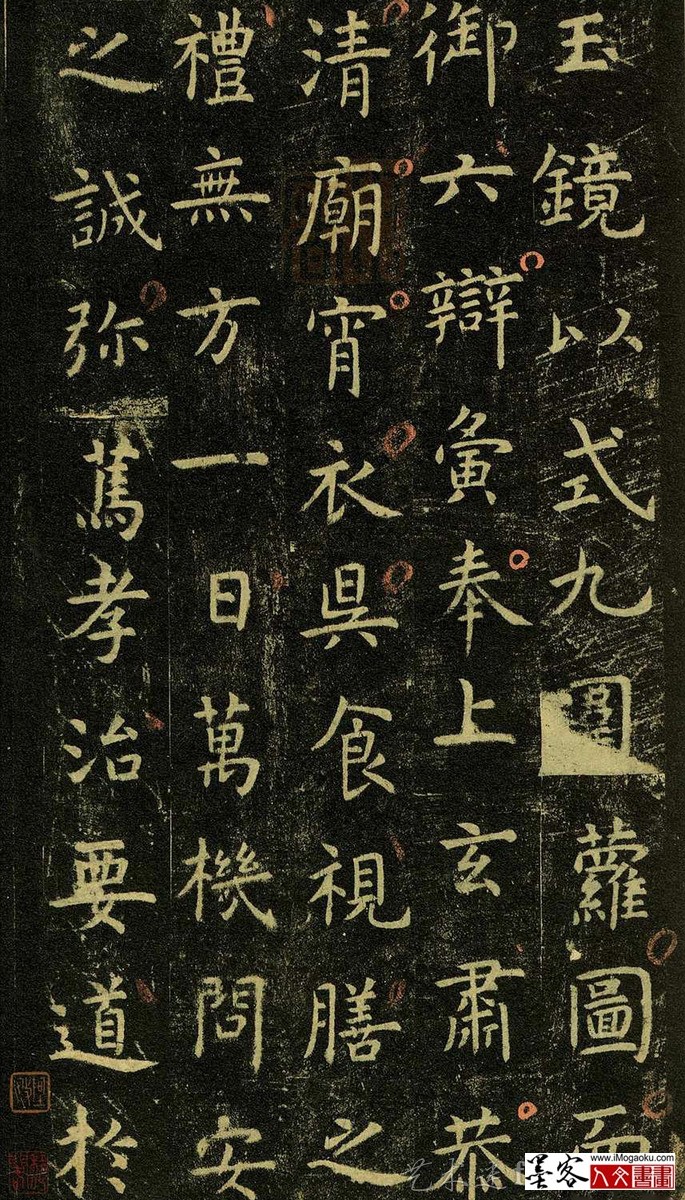 玉鏡以式九圍蘿圖而
御六辯寅奉上玄肅恭
清廟宵衣昃食視膳之
禮無方一日萬機問安
之誠弥篤孝治要道於
www.iMogaoku.com
墨客
人文書畫